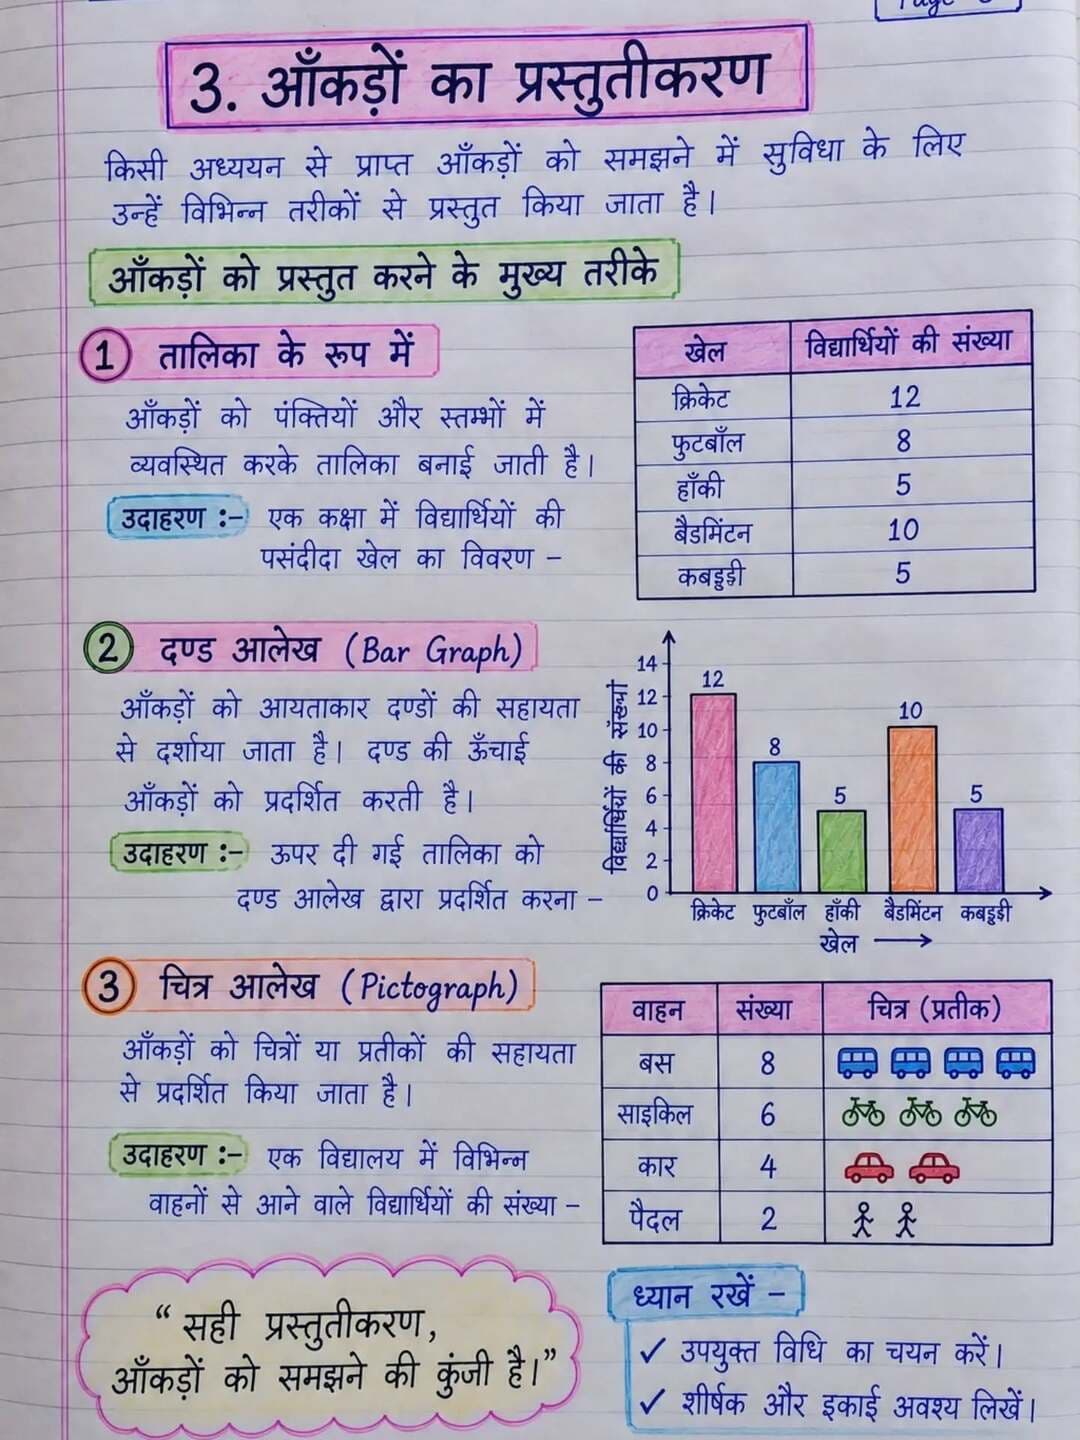 3. आँकड़ों का प्रस्तुतीकरण
किसी अध्ययन से प्राप्त आँकड़ों को समझने में सुविधा के लिए
उन्हें विभिन्न तरीकों से प्रस्तुत किया जाता है।
आँकड़ों को प्रस्तुत करने के मुख्य तरीके
1 तालिका के रूप में
आँकड़ों को पंक्तियों और स्तम्भों में
व्यवस्थित करके तालिका बनाई जाती है।
उदाहरण :- एक कक्षा में विद्यार्थियों की
पसंदीदा खेल का विवरण –
खेल विद्यार्थियों की संख्या
क्रिकेट 12
फुटबॉल 8
हॉकी 5
बैडमिंटन 10
कबड्डी 5
2 दण्ड आलेख (Bar Graph)
आँकड़ों को आयताकार दण्डों की सहायता
से दर्शाया जाता है। दण्ड की ऊँचाई
आँकड़ों को प्रदर्शित करती है।
उदाहरण :- ऊपर दी गई तालिका को
दण्ड आलेख द्वारा प्रदर्शित करना –
विद्यार्थियों की संख्या
14
12
10
8
6
4
2
0
12
8
5
10
5
क्रिकेट फुटबॉल हॉकी बैडमिंटन कबड्डी
खेल →
3 चित्र आलेख (Pictograph)
आँकड़ों को चित्रों या प्रतीकों की सहायता
से प्रदर्शित किया जाता है।
उदाहरण :- एक विद्यालय में विभिन्न
वाहनों से आने वाले विद्यार्थियों की संख्या –
वाहन संख्या चित्र (प्रतीक)
बस 8
साइकिल 6
कार 4
पैदल 2
“ सही प्रस्तुतीकरण,
आँकड़ों को समझने की कुंजी है।”
ध्यान रखें –
✓ उपयुक्त विधि का चयन करें।
✓ शीर्षक और इकाई अवश्य लिखें।